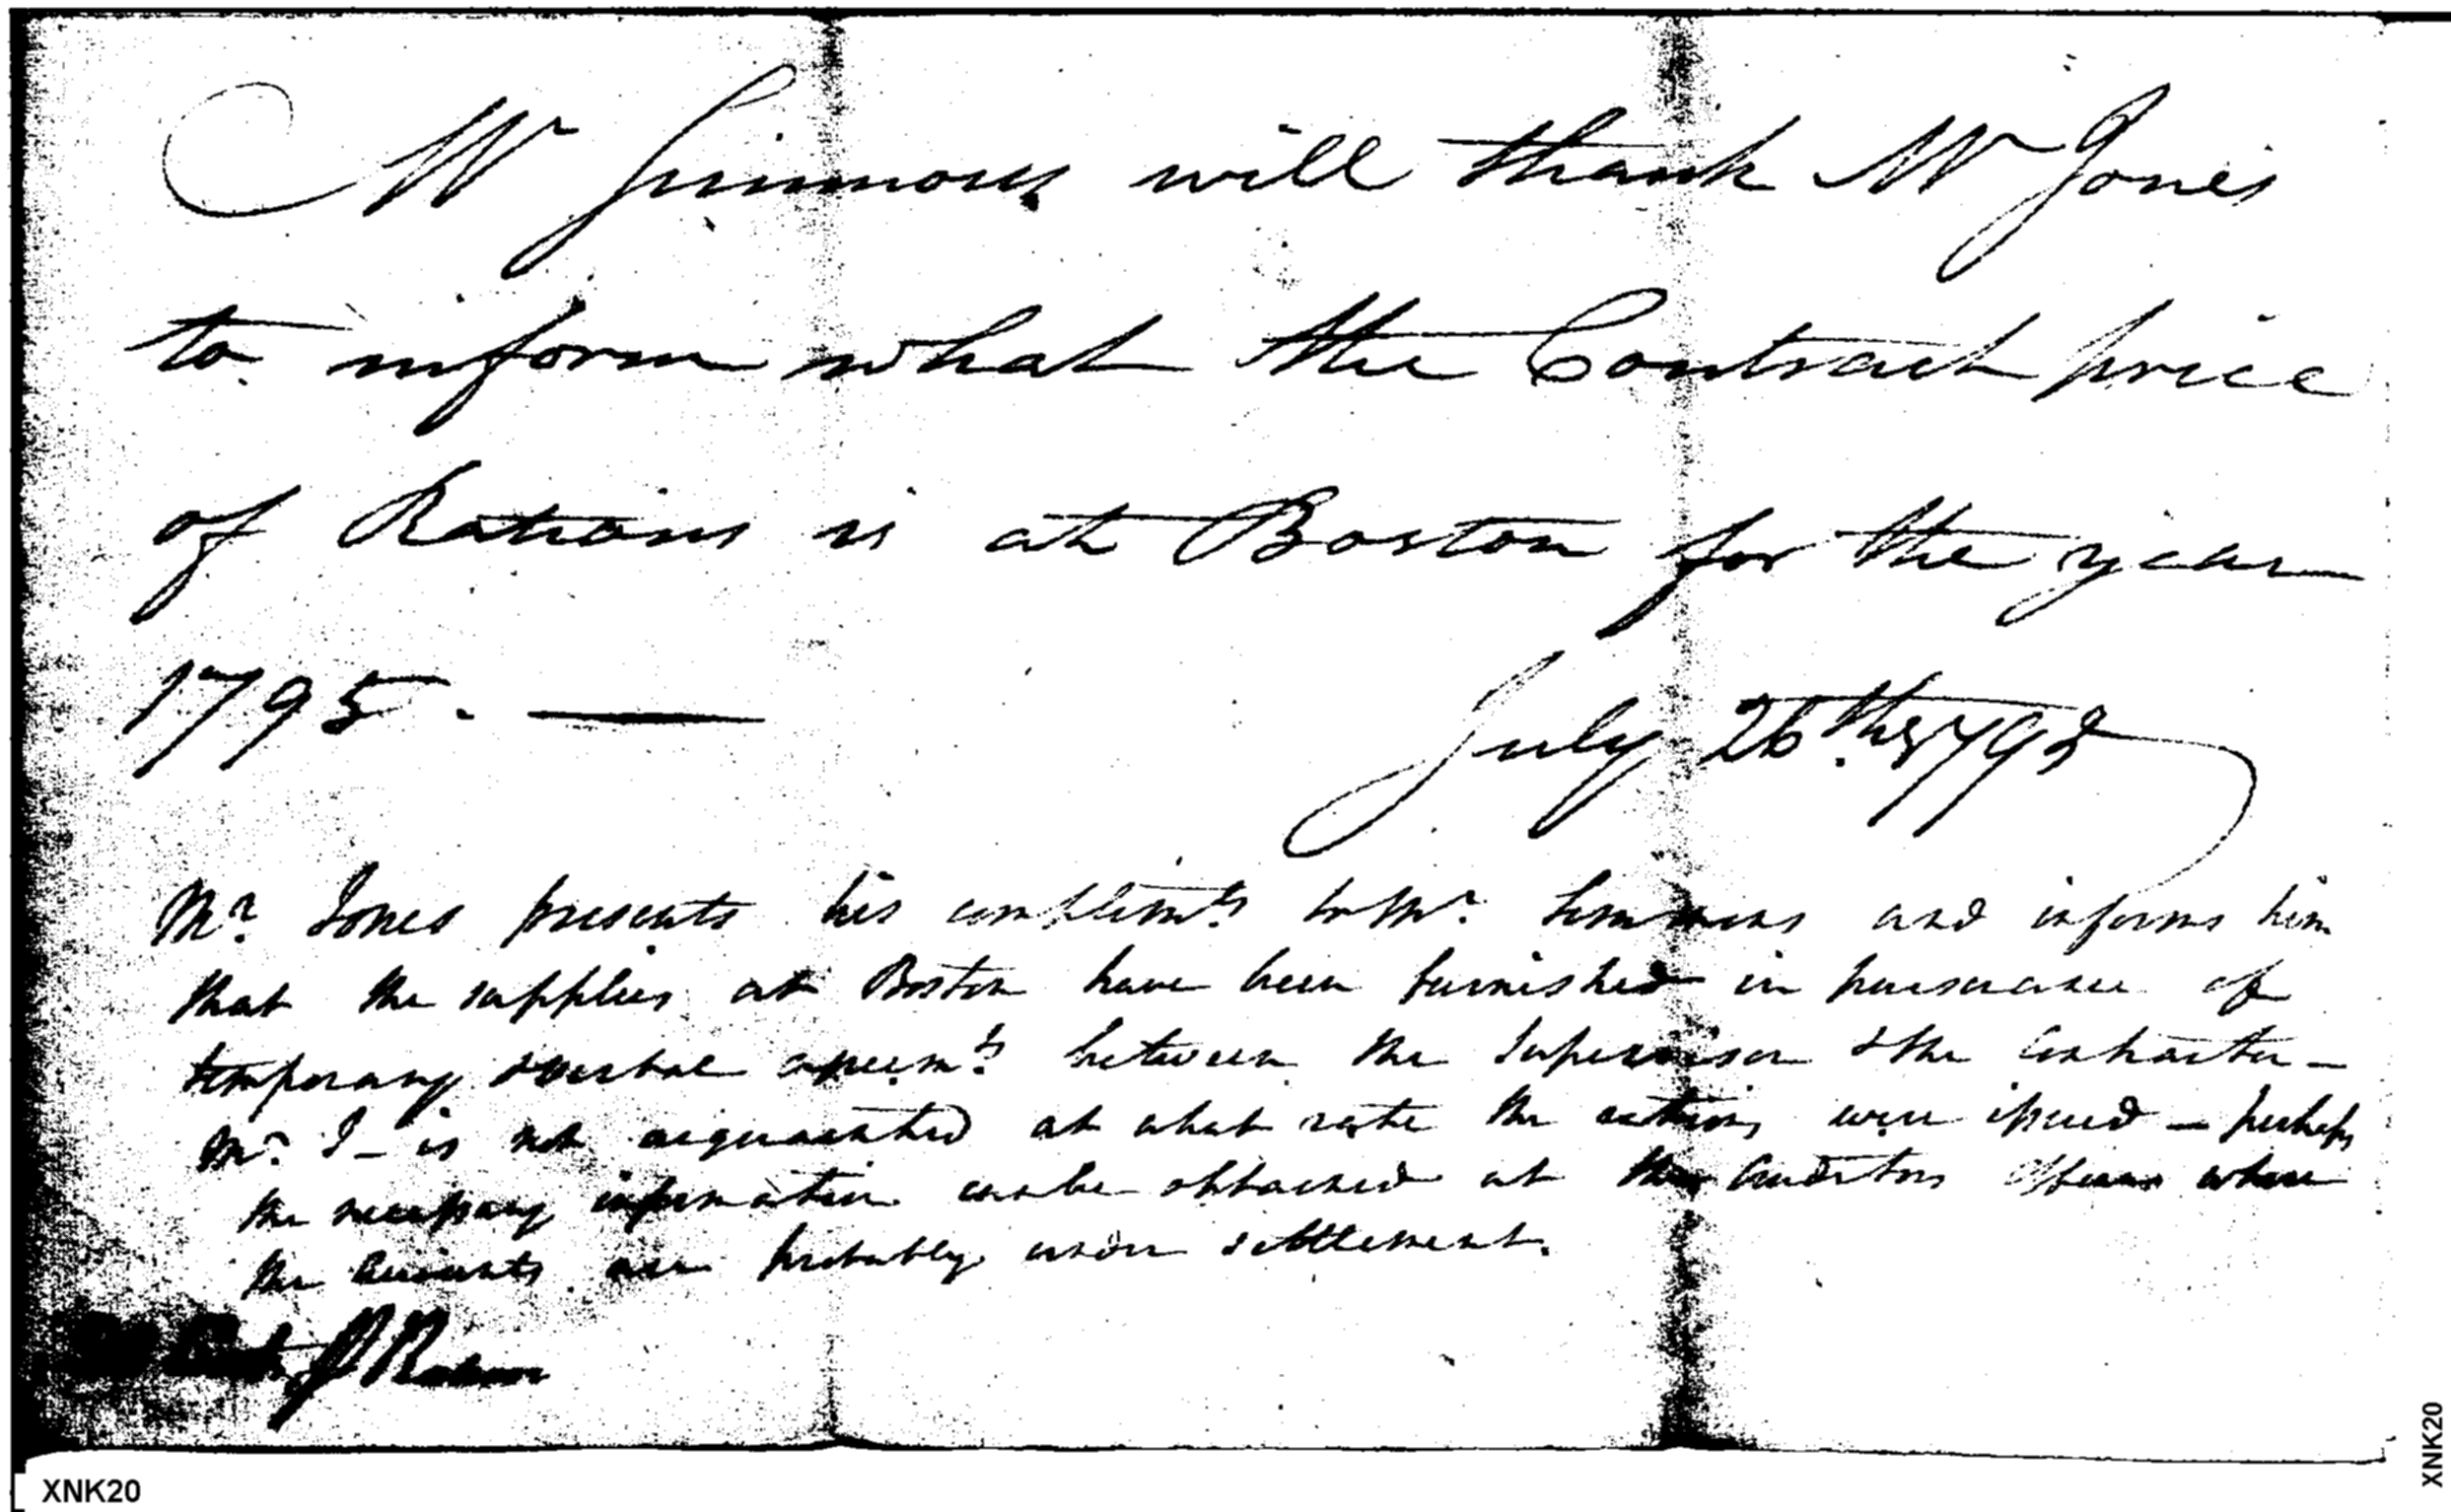 Mr Simmons will thank Mr Jones
to inform what the Contract price
of Rations is at Boston for the year
1795. —
July 26th 1795
Mr. Jones presents his complimts. to Mr. Simmons and informs him
that the supplies at Boston have been furnished in pursuance of
temporary verbal agreemts. between the Supervisor & the Contractor —
Mr. J — is not acquainted at what rate the rations were issued — perhaps
the necessary information can be obtained at the Auditors Office where
the Accounts are probably under settlement.
XNK20
XNK20